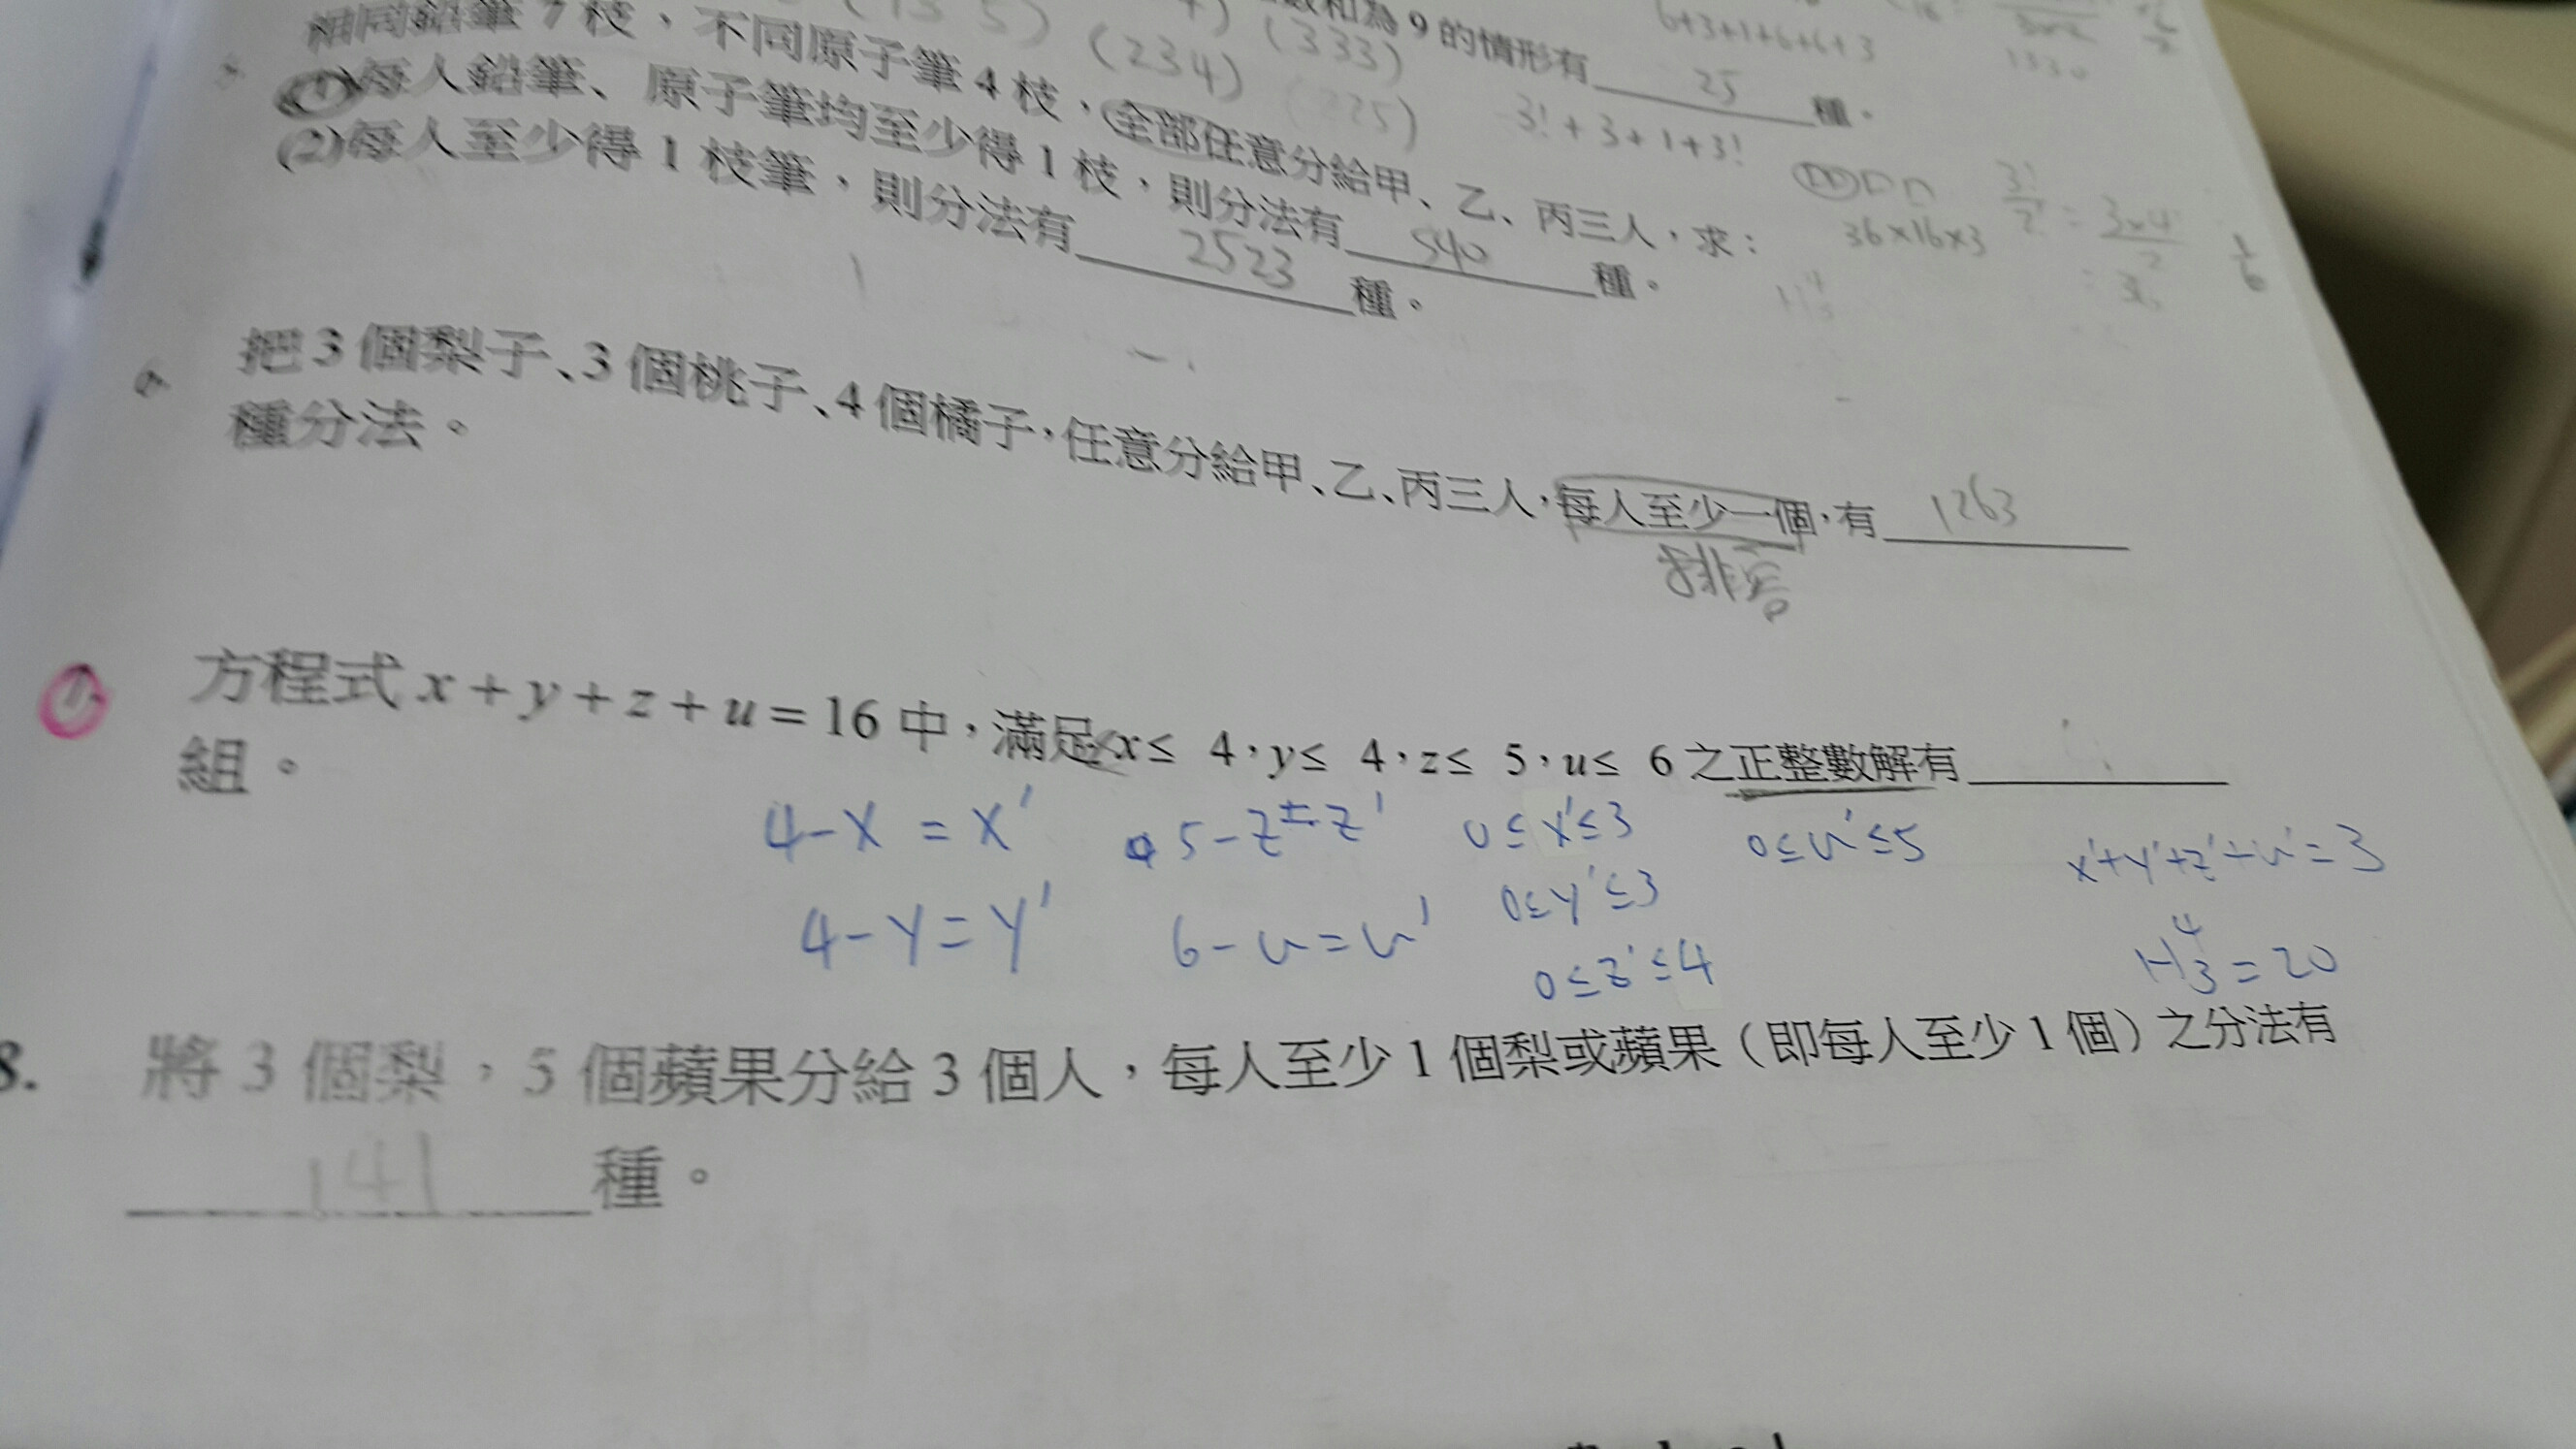 (135) (234) (333) (225)
數和為 9 的情形有 25 種。
6+3+1+6+6+3
3!+3+1+3!
相同鉛筆 7 枝，不同原子筆 4 枝，全部任意分給甲、乙、丙三人，求：
(1)每人鉛筆、原子筆均至少得 1 枝，則分法有 540 種。
(2)每人至少得 1 枝筆，則分法有 2523 種。
36×16×3
把 3 個梨子、3 個桃子、4 個橘子，任意分給甲、乙、丙三人，每人至少一個，有 1263
種分法。
7.
方程式 x + y + z + u = 16 中，滿足 x≤ 4，y≤ 4，z≤ 5，u≤ 6 之正整數解有
組。
4-x = x' 5-z=z' 0≤x'≤3 0≤u'≤5 x'+y'+z'+u'=3
4-y=y' 6-u=u' 0≤y'≤3
0≤z'≤4 H⁴₃=20
8. 將 3 個梨，5 個蘋果分給 3 個人，每人至少 1 個梨或蘋果（即每人至少 1 個）之分法有
141 種。